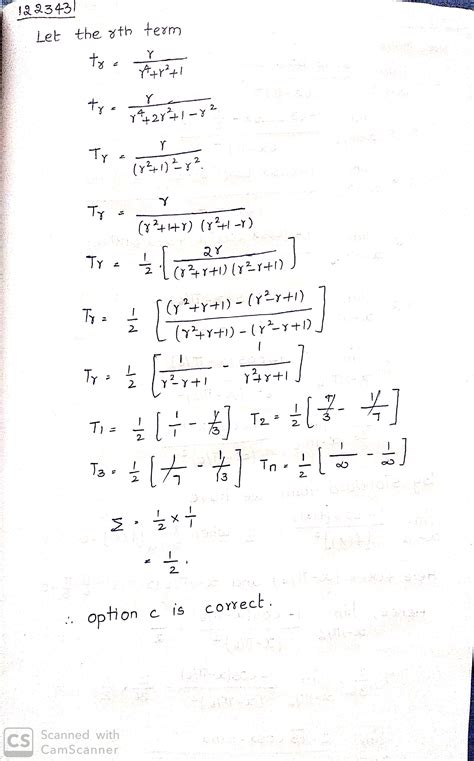 1223431
Let the rth term
tr = r / r⁴+r²+1
tr = r / r⁴+2r²+1-r²
Tr = r / (r²+1)²-r².
Tr = r / (r²+1+r) (r²+1-r)
Tr = 1/2 [ 2r / (r²+r+1) (r²-r+1) ]
Tr = 1/2 [ (r²+r+1) - (r²-r+1) / (r²+r+1) - (r²-r+1) ]
Tr = 1/2 [ 1 / r²-r+1 - 1 / r²+r+1 ]
T1 = 1/2 [ 1/1 - 1/3 ] T2 = 1/2 [ 1/3 - 1/7 ]
T3 = 1/2 [ 1/7 - 1/13 ] Tn = 1/2 [ 1/∞ - 1/∞ ]
Σ = 1/2 × 1/1
= 1/2.
∴ option c is correct.
CS Scanned with
CamScanner